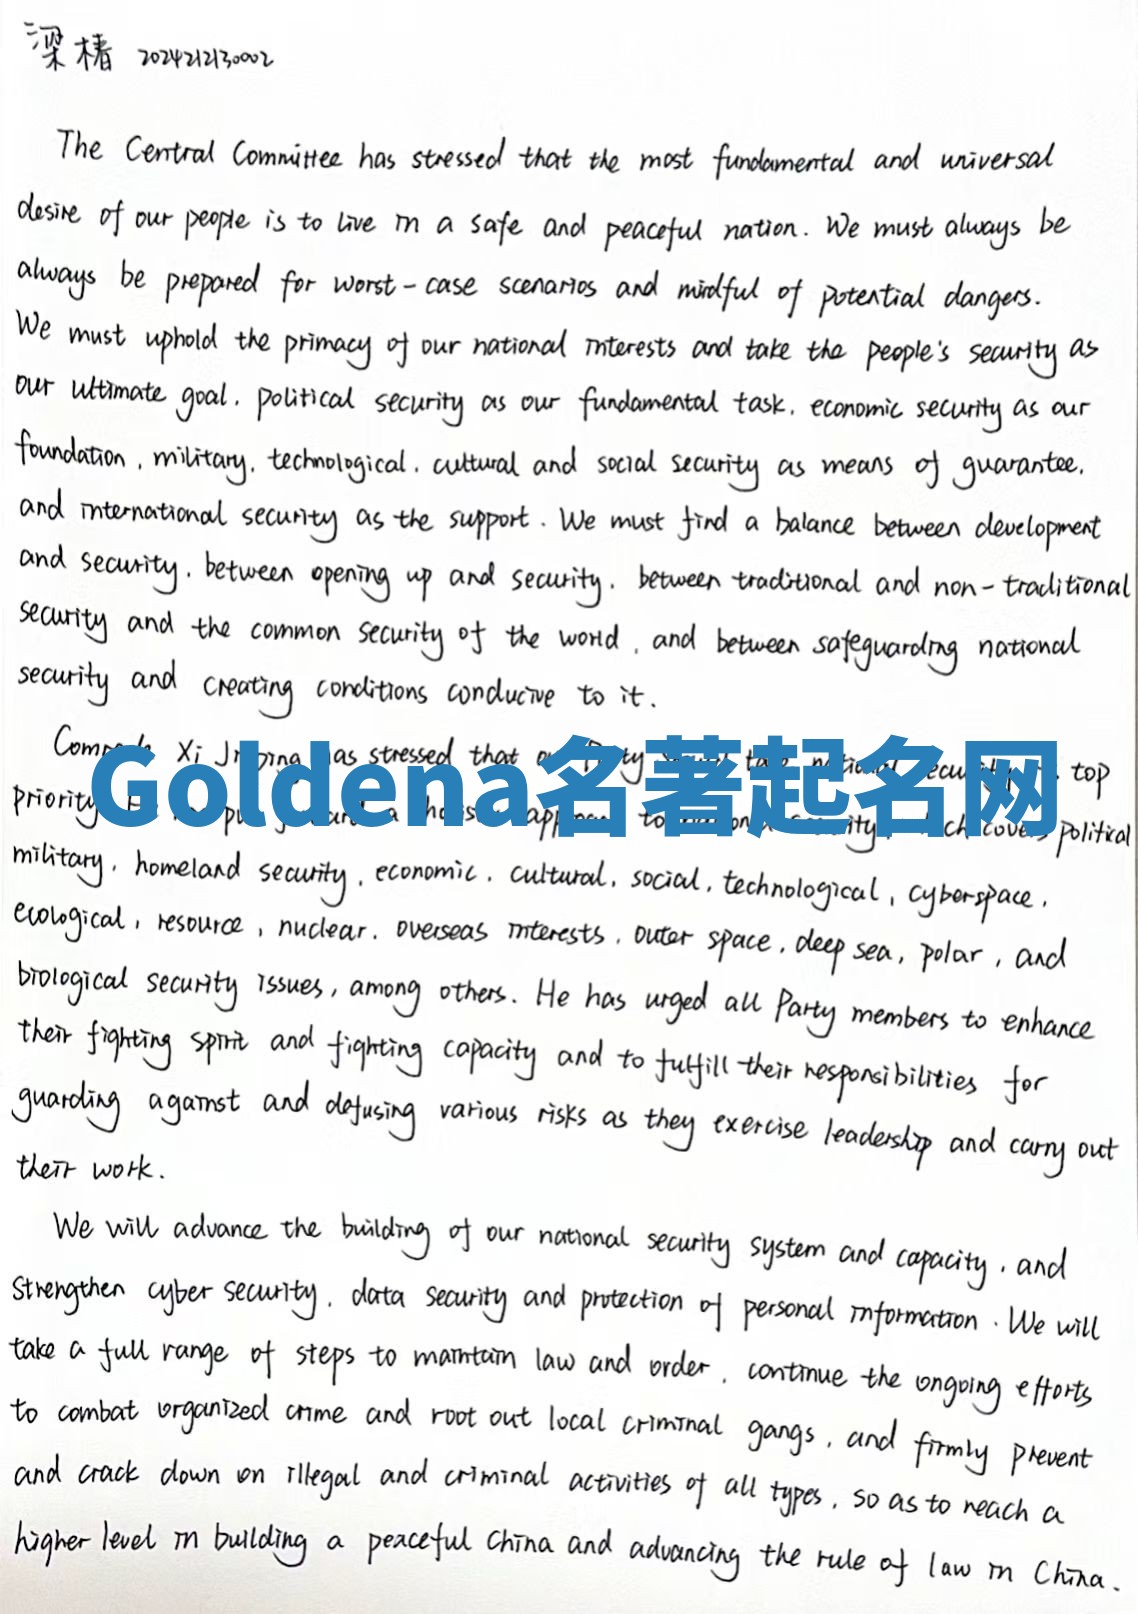 梁椿 2024212130002
The Central Committee has stressed that the most fundamental and universal
desire of our people is to live in a safe and peaceful nation. We must always be
always be prepared for worst-case scenarios and mindful of potential dangers.
We must uphold the primacy of our national interests and take the people's security as
our ultimate goal, political security as our fundamental task, economic security as our
foundation, military, technological, cultural and social security as means of guarantee,
and international security as the support. We must find a balance between development
and security, between opening up and security, between traditional and non-traditional
security and the common security of the world, and between safeguarding national
security and creating conditions conducive to it.
Xi Jinping has stressed that our Party national security top
Goldena名著起名网
priority. a to national security, which covers political
military, homeland security, economic, cultural, social, technological, cyberspace,
ecological, resource, nuclear, overseas interests, outer space, deep sea, polar, and
biological security issues, among others. He has urged all Party members to enhance
their fighting spirit and fighting capacity and to fulfill their responsibilities for
guarding against and defusing various risks as they exercise leadership and carry out
their work.
We will advance the building of our national security system and capacity, and
strengthen cyber security, data security and protection of personal information. We will
take a full range of steps to maintain law and order, continue the ongoing efforts
to combat organized crime and root out local criminal gangs, and firmly prevent
and crack down on illegal and criminal activities of all types, so as to reach a
higher level in building a peaceful China and advancing the rule of law in China.